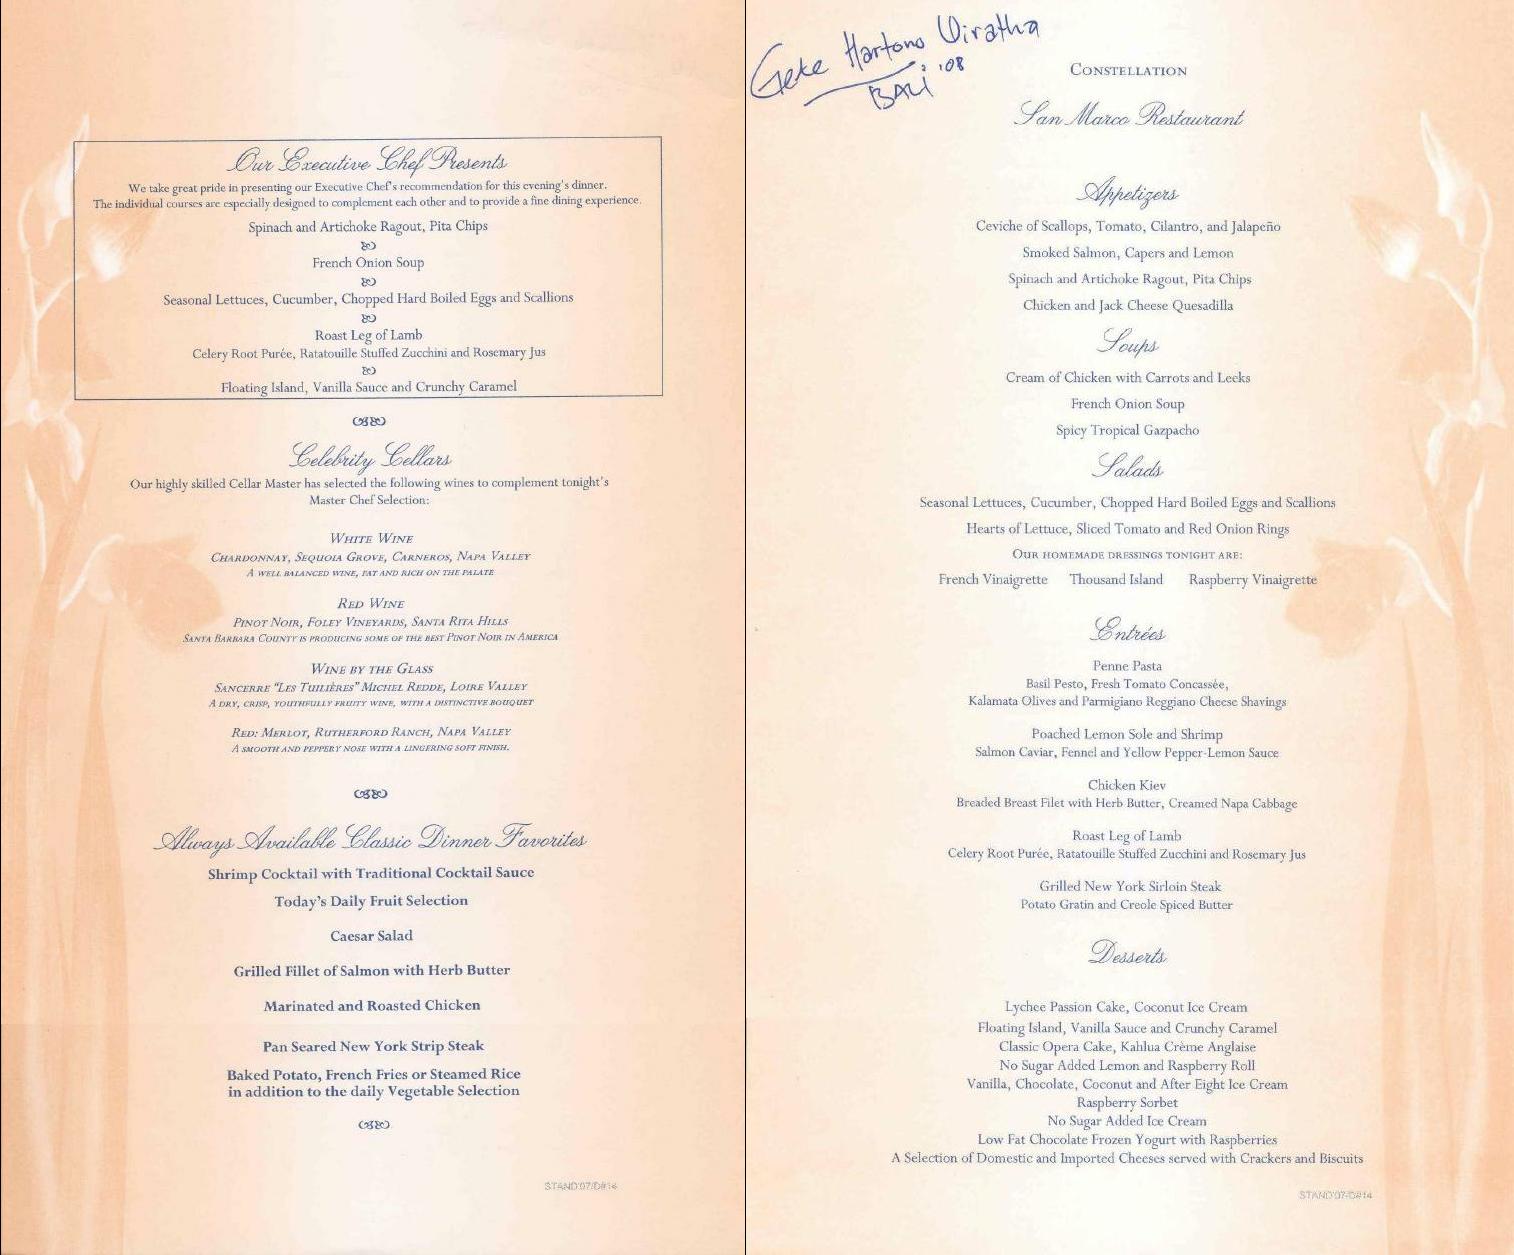 Our Executive Chef Presents
We take great pride in presenting our Executive Chef's recommendation for this evening's dinner.
The individual courses are especially designed to complement each other and to provide a fine dining experience.
Spinach and Artichoke Ragout, Pita Chips
French Onion Soup
Seasonal Lettuces, Cucumber, Chopped Hard Boiled Eggs and Scallions
Roast Leg of Lamb
Celery Root Purée, Ratatouille Stuffed Zucchini and Rosemary Jus
Floating Island, Vanilla Sauce and Crunchy Caramel
Celebrity Cellars
Our highly skilled Cellar Master has selected the following wines to complement tonight's
Master Chef Selection:
White Wine
Chardonnay, Sequoia Grove, Carneros, Napa Valley
A well balanced wine, fat and rich on the palate
Red Wine
Pinot Noir, Foley Vineyards, Santa Rita Hills
Santa Barbara County is producing some of the best Pinot Noir in America
Wine by the Glass
Sancerre "Les Tuilières" Michel Redde, Loire Valley
A dry, crisp, youthfully fruity wine, with a distinctive bouquet
Red: Merlot, Rutherford Ranch, Napa Valley
A smooth and peppery nose with a lingering soft finish.
Always Available Classic Dinner Favorites
Shrimp Cocktail with Traditional Cocktail Sauce
Today's Daily Fruit Selection
Caesar Salad
Grilled Fillet of Salmon with Herb Butter
Marinated and Roasted Chicken
Pan Seared New York Strip Steak
Baked Potato, French Fries or Steamed Rice
in addition to the daily Vegetable Selection
STAND'07/D#14
Hartono Viratha
BALI '08
Constellation
San Marco Restaurant
Appetizers
Ceviche of Scallops, Tomato, Cilantro, and Jalapeño
Smoked Salmon, Capers and Lemon
Spinach and Artichoke Ragout, Pita Chips
Chicken and Jack Cheese Quesadilla
Soups
Cream of Chicken with Carrots and Leeks
French Onion Soup
Spicy Tropical Gazpacho
Salads
Seasonal Lettuces, Cucumber, Chopped Hard Boiled Eggs and Scallions
Hearts of Lettuce, Sliced Tomato and Red Onion Rings
Our homemade dressings tonight are:
French Vinaigrette Thousand Island Raspberry Vinaigrette
Entrées
Penne Pasta
Basil Pesto, Fresh Tomato Concassée,
Kalamata Olives and Parmigiano Reggiano Cheese Shavings
Poached Lemon Sole and Shrimp
Salmon Caviar, Fennel and Yellow Pepper-Lemon Sauce
Chicken Kiev
Breaded Breast Filet with Herb Butter, Creamed Napa Cabbage
Roast Leg of Lamb
Celery Root Purée, Ratatouille Stuffed Zucchini and Rosemary Jus
Grilled New York Sirloin Steak
Potato Gratin and Creole Spiced Butter
Desserts
Lychee Passion Cake, Coconut Ice Cream
Floating Island, Vanilla Sauce and Crunchy Caramel
Classic Opera Cake, Kahlua Crème Anglaise
No Sugar Added Lemon and Raspberry Roll
Vanilla, Chocolate, Coconut and After Eight Ice Cream
Raspberry Sorbet
No Sugar Added Ice Cream
Low Fat Chocolate Frozen Yogurt with Raspberries
A Selection of Domestic and Imported Cheeses served with Crackers and Biscuits
STAND'07/D#14